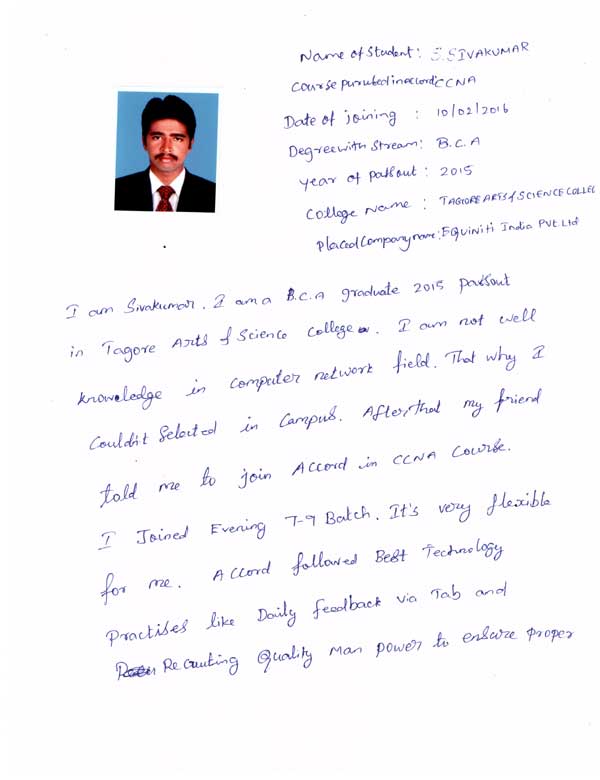 Name of Student : S. SIVAKUMAR
Course pursubed in accord : CCNA
Date of joining : 10/02/2016
Degree with Stream : B.C.A
year of passout : 2015
College Name : TAGORE ARTS & SCIENCE COLLEG
Placed Company name : EQUINITI India PVT. Ltd
I am Sivakumar. I am a B.C.A graduate 2015 passout
in Tagore Arts & Science College. I am not well
knowledge in computer network field. That why I
Couldn't Selected in Campus. After, that my friend
told me to join Accord in CCNA Course.
I Joined Evening 7-9 Batch. It's very flexible
for me. Accord followed Best Technology
Practises like Daily feedback via Tab and
Recruting Quality Man power to ensure proper